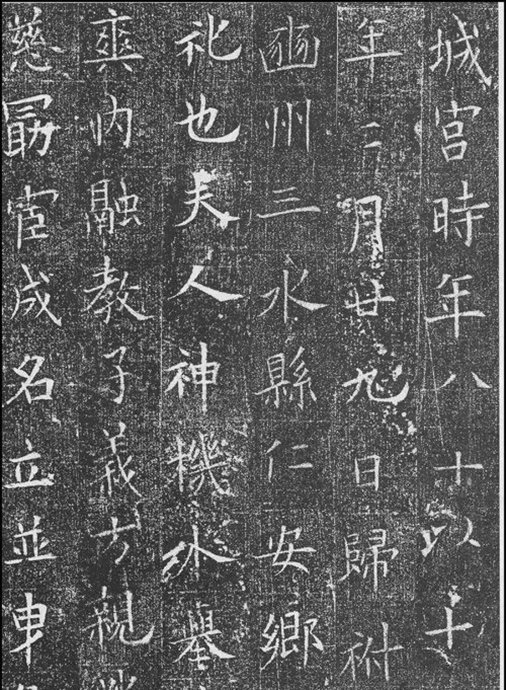 城宮時年八十以十
年二月廿九日歸祔
豳州三水縣仁安鄉
礼也夫人神機外舉
爽內融教子義方親
慈勗宦成名立並申